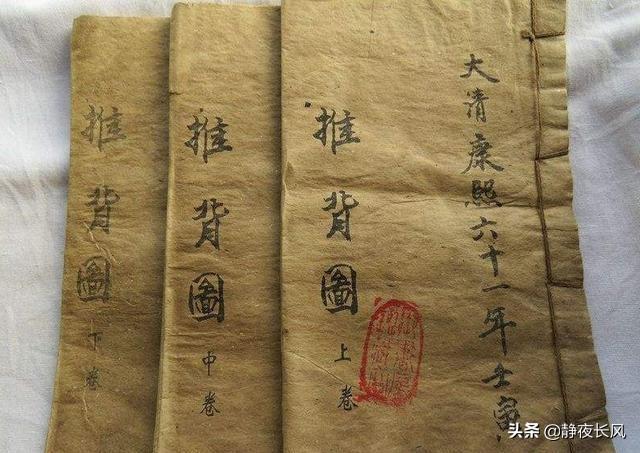 大清康熙六十一年壬寅
推背圖
上卷
推背圖
中卷
推背圖
下卷
头条 @静夜长风